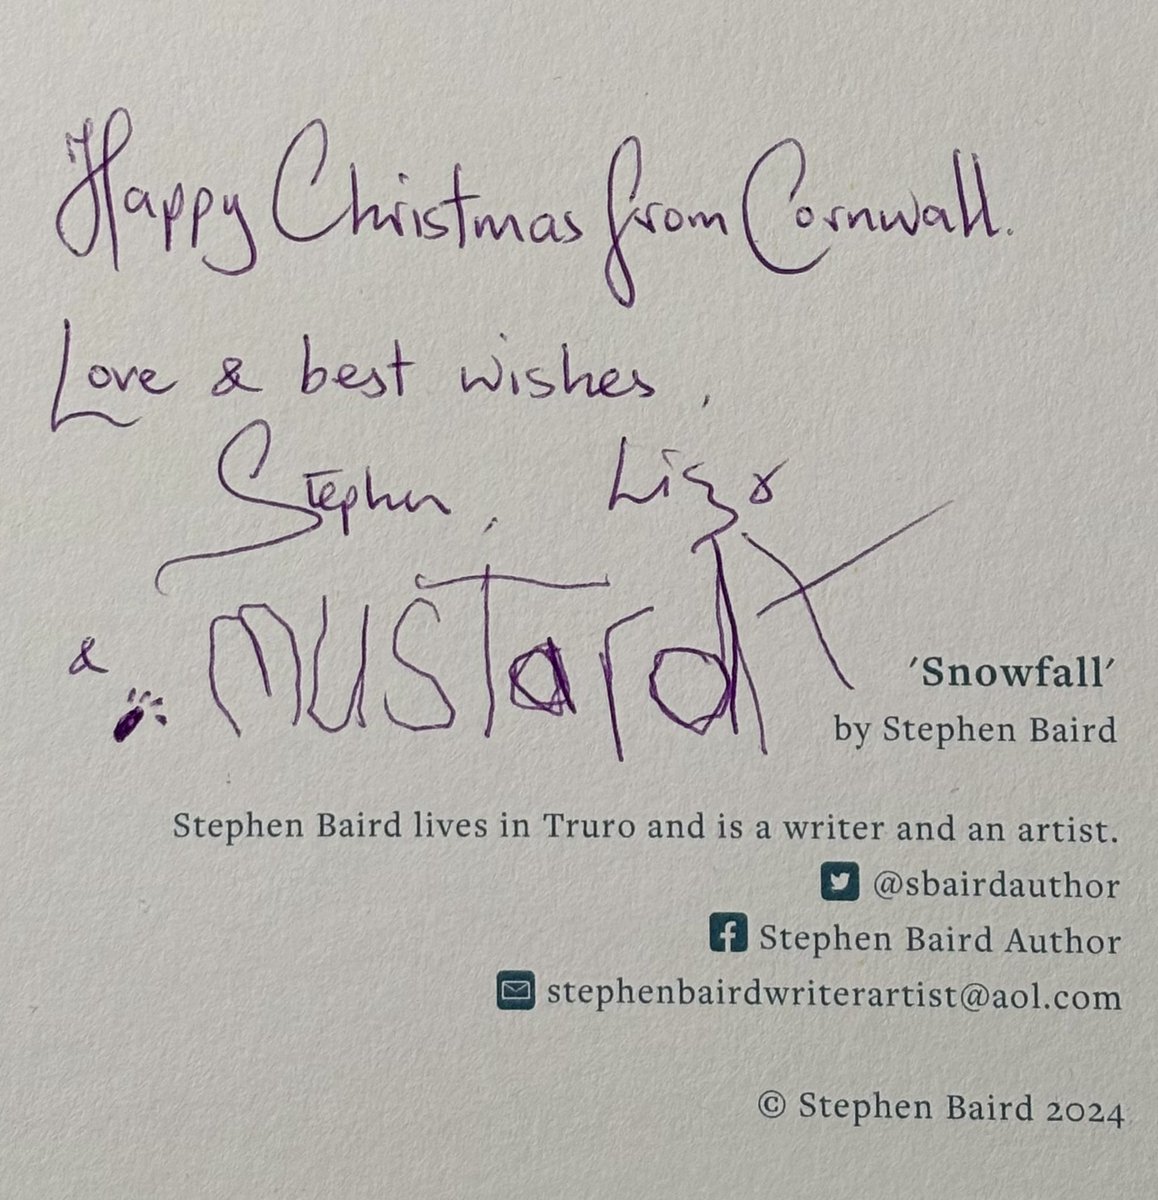 Happy Christmas from Cornwall.
Love & best wishes,
Stephen, Liz x
& MUSTard X
'Snowfall'
by Stephen Baird
Stephen Baird lives in Truro and is a writer and an artist.
@sbairdauthor
Stephen Baird Author
stephenbairdwriterartist@aol.com
© Stephen Baird 2024